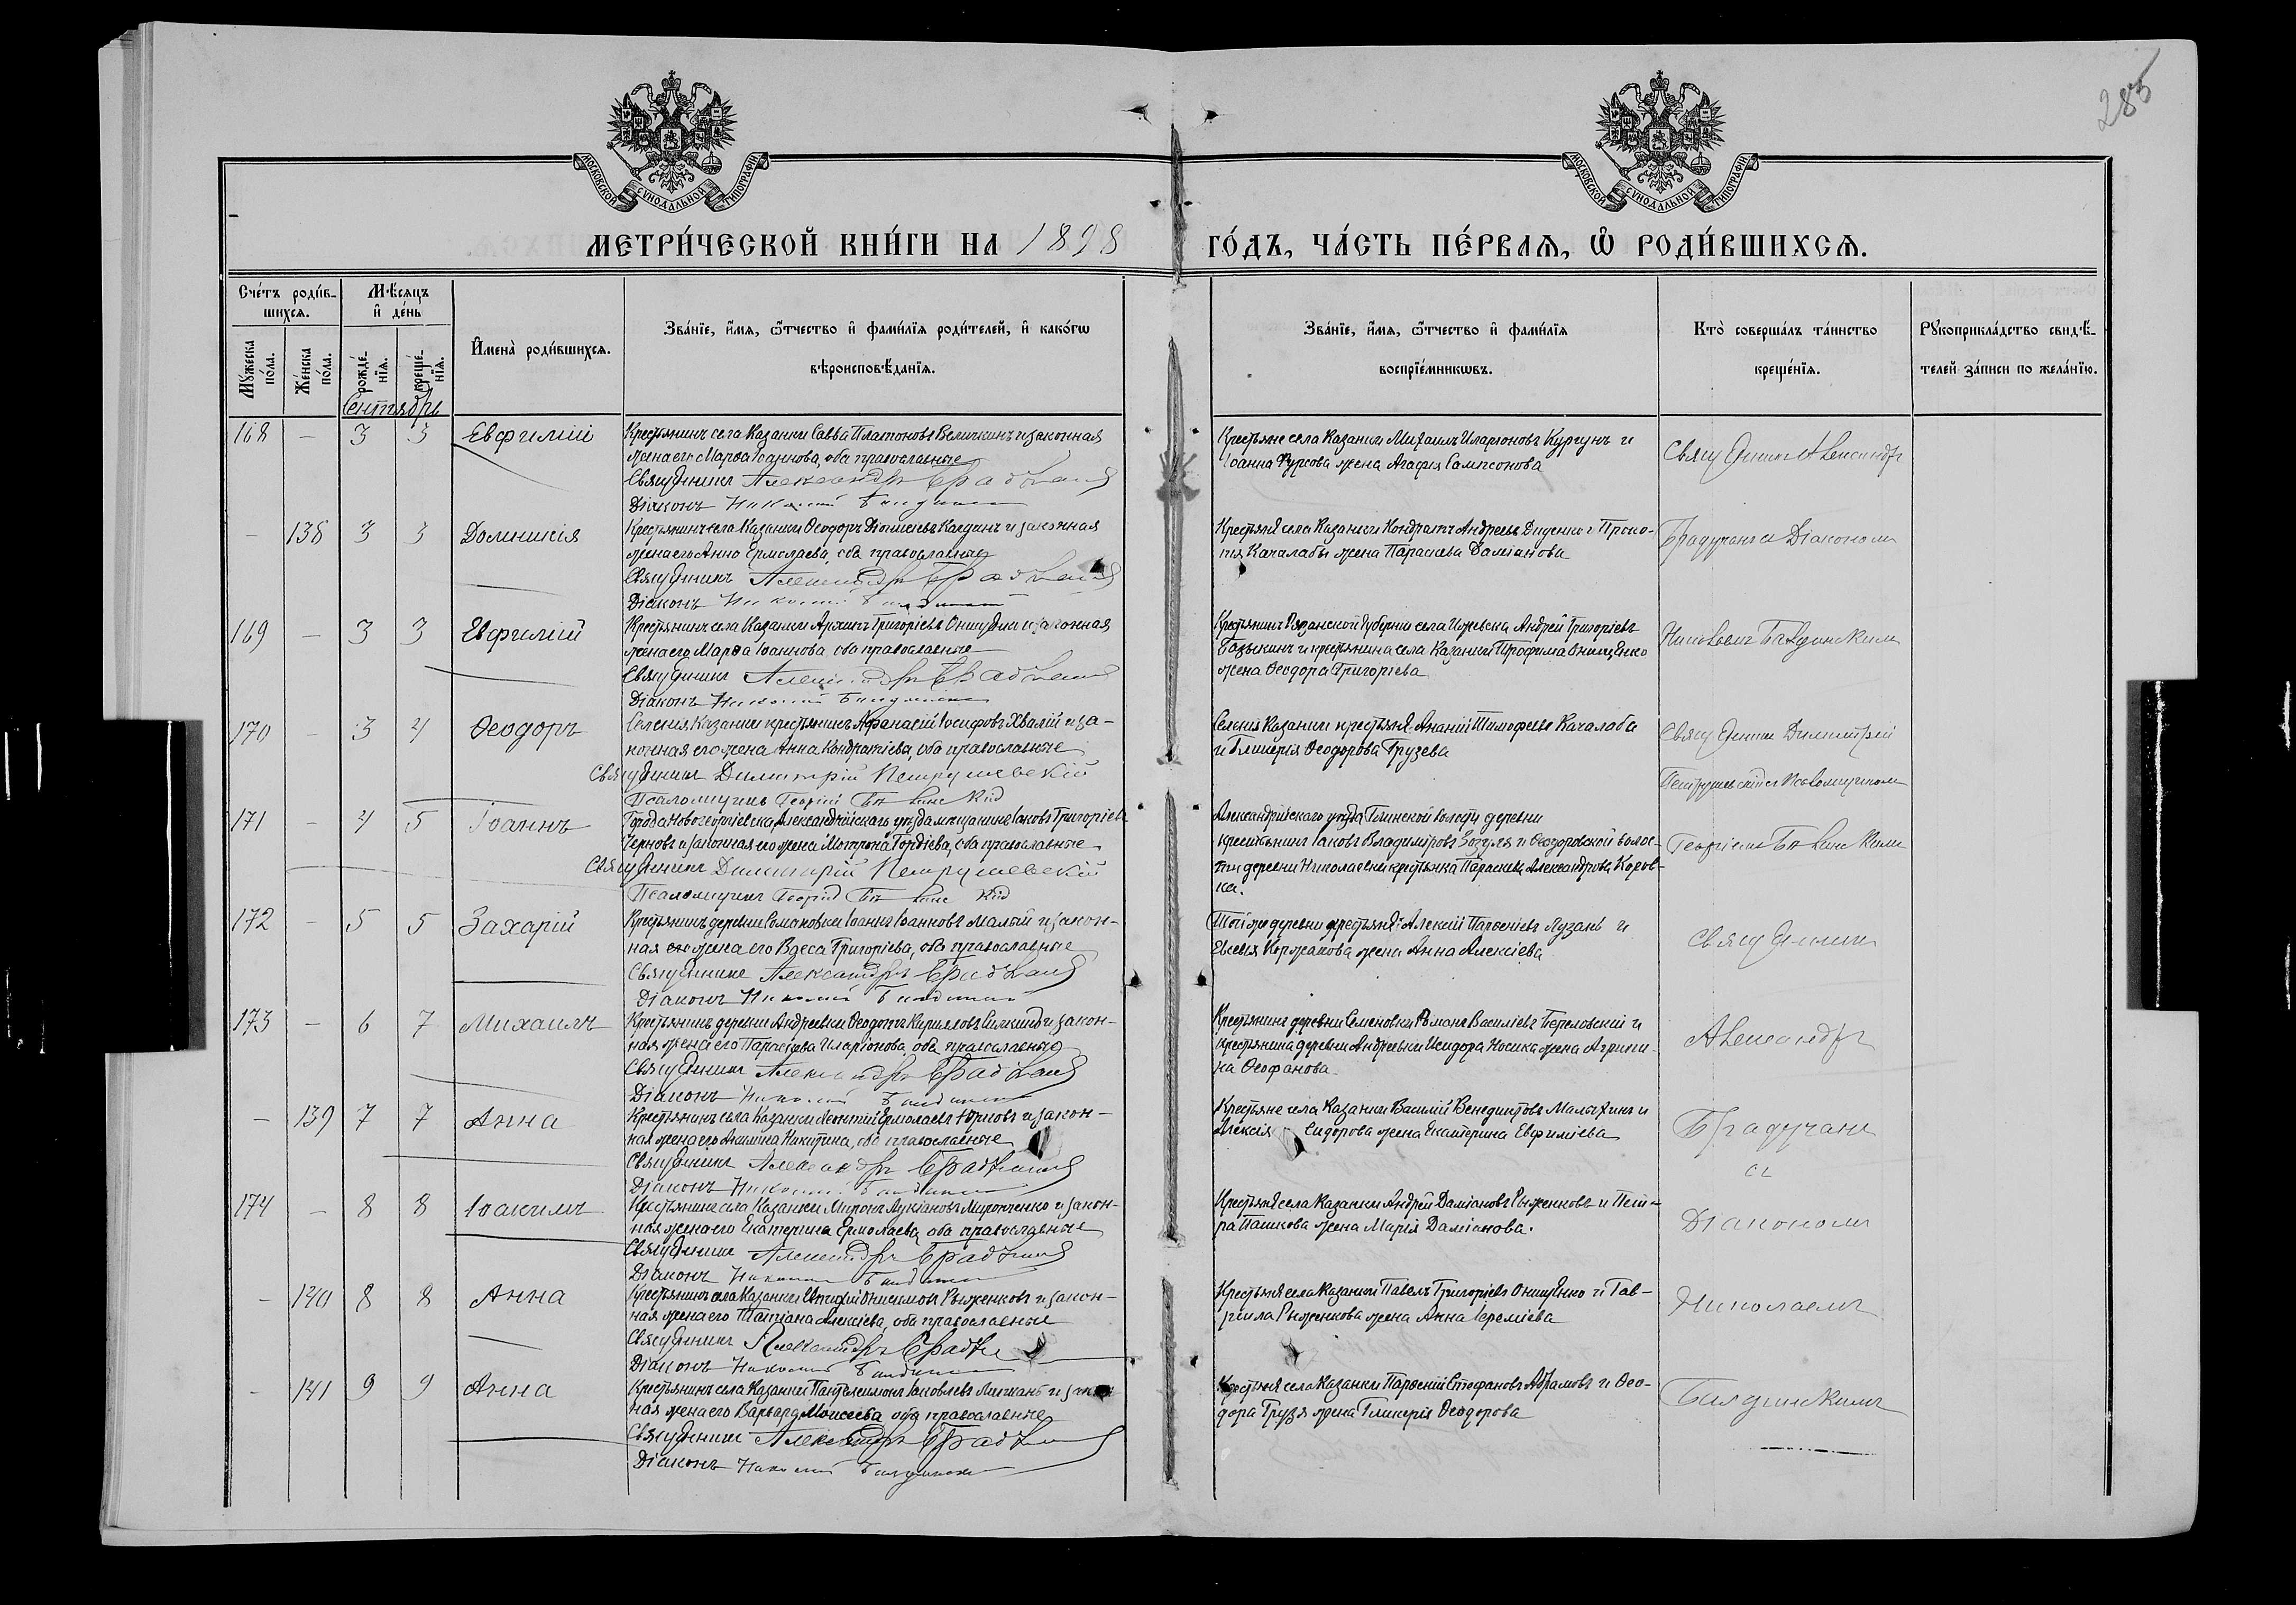 285
МОСКОВСКОЙ СѴНОДАЛЬНОЙ ТИПОГРАФІИ
МОСКОВСКОЙ СѴНОДАЛЬНОЙ ТИПОГРАФІИ
МЕТРИ́ЧЕСКОЙ КНИ́ГИ НА 1898 ГО́ДЪ, ЧА́СТЬ ПЕ́РВАѦ, Ѡ РОДИ́ВШИХСѦ.
Сче́тъ роди́в-
шихсѧ.
Мѣ́сѧцъ
и҆ де́нь
Мꙋ́жеска
по́ла.
Же́нска
по́ла.
рожде́-
нїѧ.
креще́-
нїѧ.
И҆мена̀ роди́вшихсѧ.
Зва́нїе, и҆́мѧ, ѻ҆́тчество и҆ фами́лїѧ роди́телей, и҆ како́гѡ
вѣроисповѣ́данїѧ.
Зва́нїе, и҆́мѧ, ѻ҆́тчество и҆ фами́лїѧ
воспрїе́мникѡвъ.
Кто̀ соверша́лъ та́инство
креще́нїѧ.
Рꙋкоприкла́дство свидѣ́-
телей за́писи по жела́нїю.
Сентябрь
168 – 3 3 Евфимій
Крестьянинъ села Казанки Савва Платоновъ Величкинъ и законная
жена его Марѳа Іоаннова, оба православные
Священникъ Александръ Брадучанъ
Діаконъ Николай
Крестьяне села Казанки Михаилъ Иларіоновъ Кургунъ и
Іоанна Фурсова жена Агафія Сампсонова
Священник Александръ
– 138 3 3 Домникія
Крестьянинъ села Казанки Ѳеодоръ Діонисіевъ Калдинъ и законная
жена его Анна Ермолаева, оба православные
Священникъ Александръ Брадучанъ
Діаконъ Николай
Крестьяне села Казанки Кондратъ Андреевъ Диденко и Проко-
пія Качалабы жена Параскева Даміанова
Брадучанъ съ Діакономъ
169 – 3 3 Евфимій
Крестьянинъ села Казанки Архипъ Григорьевъ Онищенко и законная
жена его Марѳа Іоаннова оба православные
Священникъ Александръ Брадучанъ
Діаконъ Николай
Крестьянинъ Рязанской Губерніи села Ижевска Андрей Григорьевъ
и крестьянина села Казанки Трофима Онищенко
жена Ѳеодора Григорьева
Николаемъ
170 – 3 4 Ѳеодоръ
Селенія Казанки крестьянинъ Афанасій Іосифовъ Хвалій и за-
конная его жена Анна Кондратіева, оба православные
Священникъ Димитрій Петрушевскій
Псаломщикъ Георгій
Селенія Казанки крестьяне: Ананій Тимофеевъ Качалоба
и Гликерія Ѳеодорова Грузева
Священник Димитрій
Петрушевскій съ Псаломщикомъ
171 – 4 5 Іоаннъ
Города Новогеоргіевска, Александрійскаго уѣзда мѣщанинъ Іаковъ Григорьевъ
Черновъ и законная его жена Матрона Гордіева, оба православные
Священникъ Димитрій Петрушевскій
Псаломщикъ Георгій
Александрійскаго уѣзда Глинской волости деревни
крестьянинъ Іаковъ Владиміровъ Зозуля и Ѳеодоровской волос-
ти деревни Николаевки крестьянка Параскева Александрова Коров-
ка.
Георгіемъ
172 – 5 5 Захарій
Крестьянинъ деревни Іоаннъ Іоанновъ Малый и закон-
ная жена его Васса Григорьева, оба православные
Священникъ Александръ Брадучанъ
Діаконъ Николай
Той же деревни крестьяне: Алексій Парѳеніевъ Лузанъ и
Евсевія Коржакова жена Анна Алексіева
Священник
173 – 6 7 Михаилъ
Крестьянинъ деревни Андреевки Кирилловъ и закон-
ная жена его Параскева Иларіонова, оба православные
Священникъ Александръ Брадучанъ
Діаконъ Николай
Крестьянинъ деревни Семеновки Романъ Василіевъ и
крестьянина деревни Андреевки Исидора Носика жена Агрипи-
на Ѳеофанова
Александръ
– 139 7 7 Анна
Крестьянинъ села Казанки Леонтій Ермолаевъ и закон-
ная жена его Акилина Никитина, оба православные
Священникъ Александръ Брадучанъ
Діаконъ Николай
Крестьяне села Казанки Василій Венедиктовъ Малыхинъ и
Алексія Сидорова жена Екатерина Евфиміева
Брадучанъ
съ
174 – 8 8 Іоакимъ
Крестьянинъ села Казанки Миронъ Лукіановъ Миронченко и закон-
ная жена его Екатерина Ермолаева, оба православные
Священникъ Александръ Брадучанъ
Діаконъ Николай
Крестьяне села Казанки Андрей Даміановъ Рыженковъ и Пет-
ра Пашкова жена Марія Даміанова.
Діакономъ
– 140 8 8 Анна
Крестьянинъ села Казанки Онисимовъ Рыженковъ и закон-
ная жена его Татіана Алексіева, оба православные
Священникъ Александръ
Діаконъ Николай
Крестьяне села Казанки Павелъ Григорьевъ Онищенко и Гав-
ріила Рыженкова жена Анна Іереміева
Николаемъ
– 141 9 9 Анна
Крестьянинъ села Казанки Пантелеимонъ Іаковлевъ и закон
ная жена его Варвара Моисеева оба православные
Священникъ Александръ
Діаконъ Николай
Крестьяне села Казанки Парѳеній Стефановъ Абрамовъ и Ѳео-
дора Грузя жена Гликерія Ѳеодорова